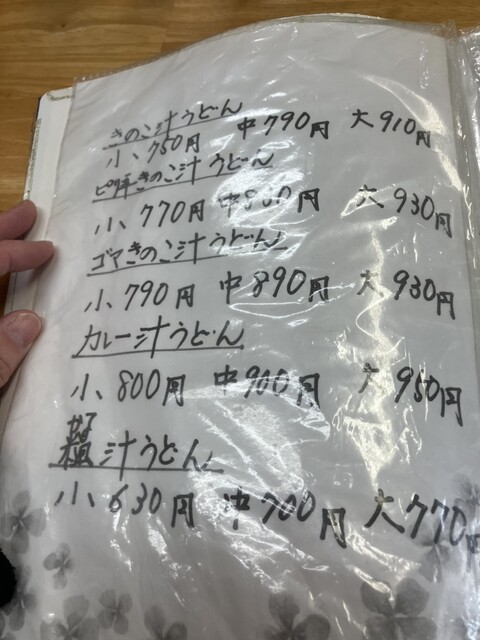 きのこ汁うどん
小、750円 中790円 大910円
ピリ辛きのこ汁うどん
小、770円 中860円 大930円
ゴマきのこ汁うどん
小、790円 中890円 大930円
カレー汁うどん
小、800円 中900円 大950円
汁うどん
小、630円 中700円 大770円